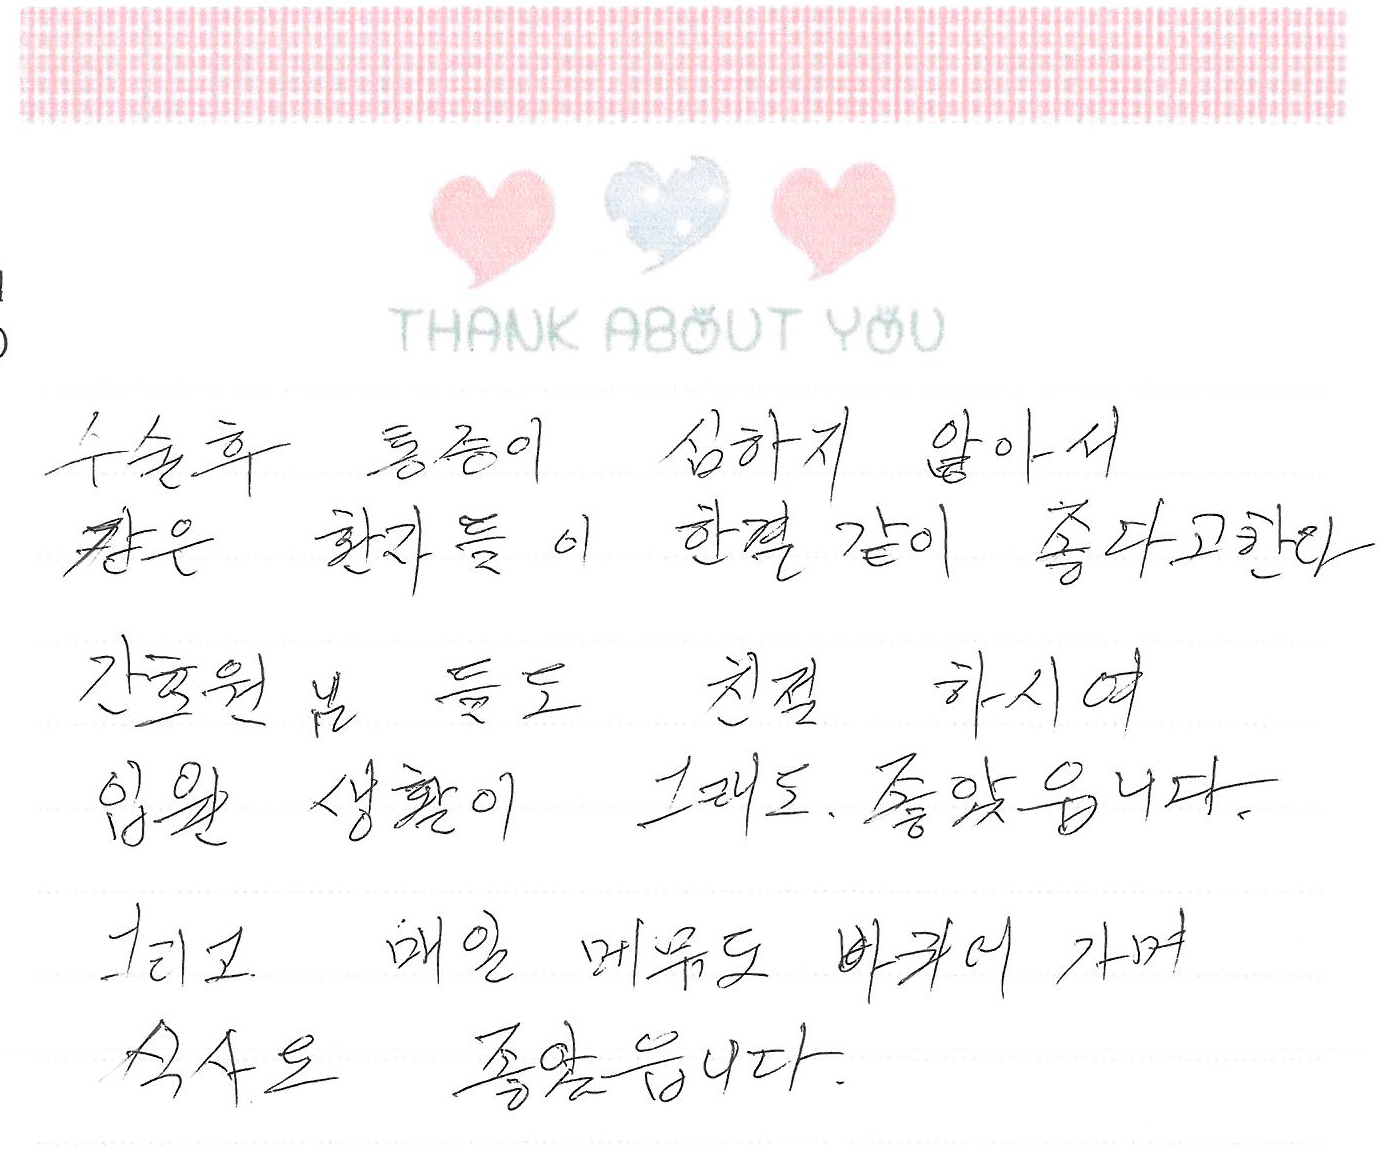 THANK ABOUT YOU
수술후 통증이 심하지 않아서
많은 환자들이 한결같이 좋다고한다
간호원님들도 친절하시여
입원 생활이 그래도. 좋았읍니다.
그리고 매일 메뉴도 바뀌어 가며
식사도 좋았읍니다.